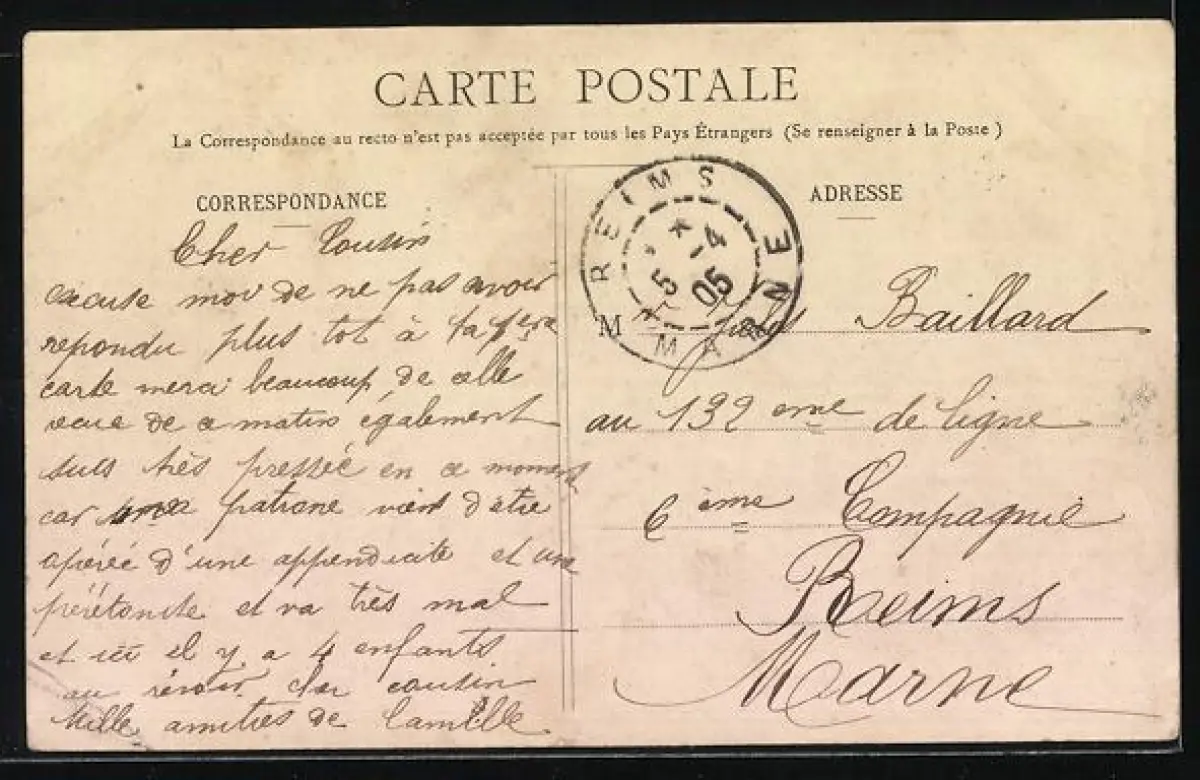 CARTE POSTALE
La Correspondance au recto n'est pas acceptée par tous les Pays Étrangers (Se renseigner à la Poste)
CORRESPONDANCE
Cher Cousin
excuse moi de ne pas avoir
repondu plus tot à ta
carte merci beaucoup de celle
recue de ce matin également
suis très pressée en ce moment
car ma patrone vient d'être
opérée d'une appendicite et une
péretonite et va très mal
et ici il y a 4 enfants
au revoir cher cousin
Mille amitiés de Camille
ADRESSE
REIMS
MARNE
5 -4
05
M Baillard
au 132 eme de ligne
6 ème Compagnie
Reims
Marne